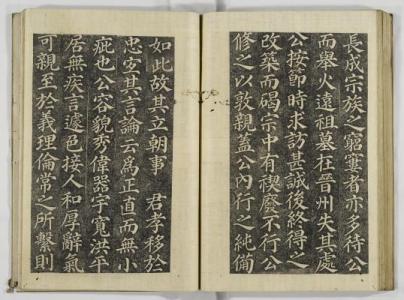 長成宗族之窮窶者亦多待公
而舉火遠祖墓在晉州失其處
公按節時求訪甚誠後終得之
改築而碣宗中有禊廢不行公
修之以敦親蓋公內行之純備
如此故其立朝事　君孝移於
忠宏其言論云爲正直而無小
疵也公容貌秀偉器宇寬洪平
居無疾言遽色接人和厚辭氣
可親至於義理倫常之所繫則